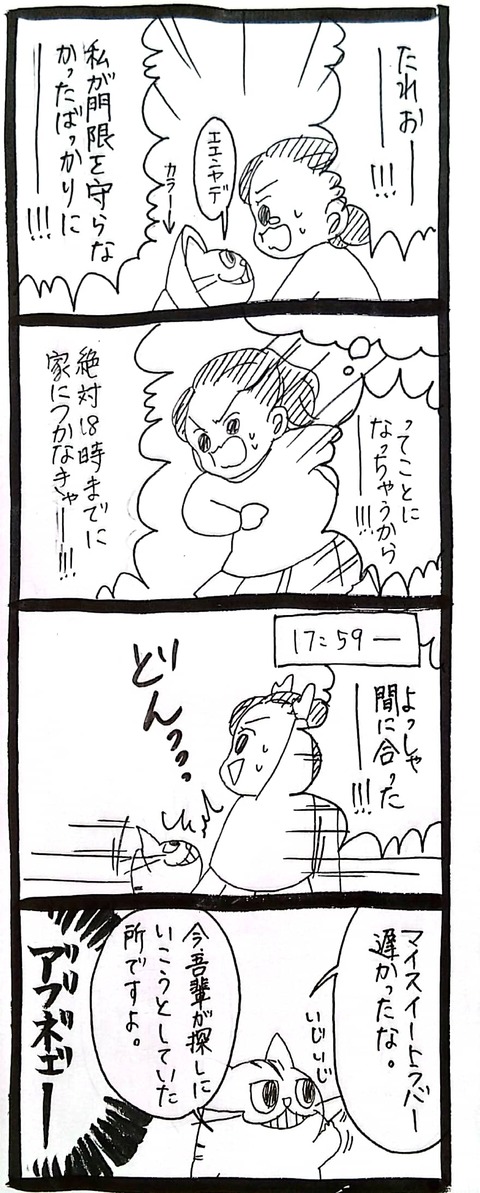 たれおー
ーー!!!
エエンヤデ
カラー→
私が門限を守らな
かったばっかりに
ーー!!!
ってことに
なっちゃうから
ーー!!!
絶対18時までに
家につかなきゃー!!!
17:59ー
よっしゃ
間に合った
ーー!!!
どんっっ
マイスイートラバー
遅かったな。
いじいじ
今吾輩が探しに
いこうとしていた
所ですよ。
アブネェー